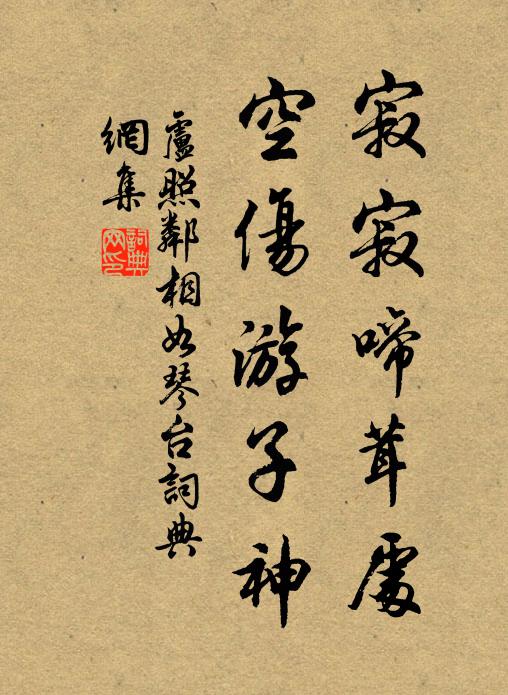 寂寂啼茸處
空傷游子神
盧照鄰相如琴台詞典
網集
詞典
网印